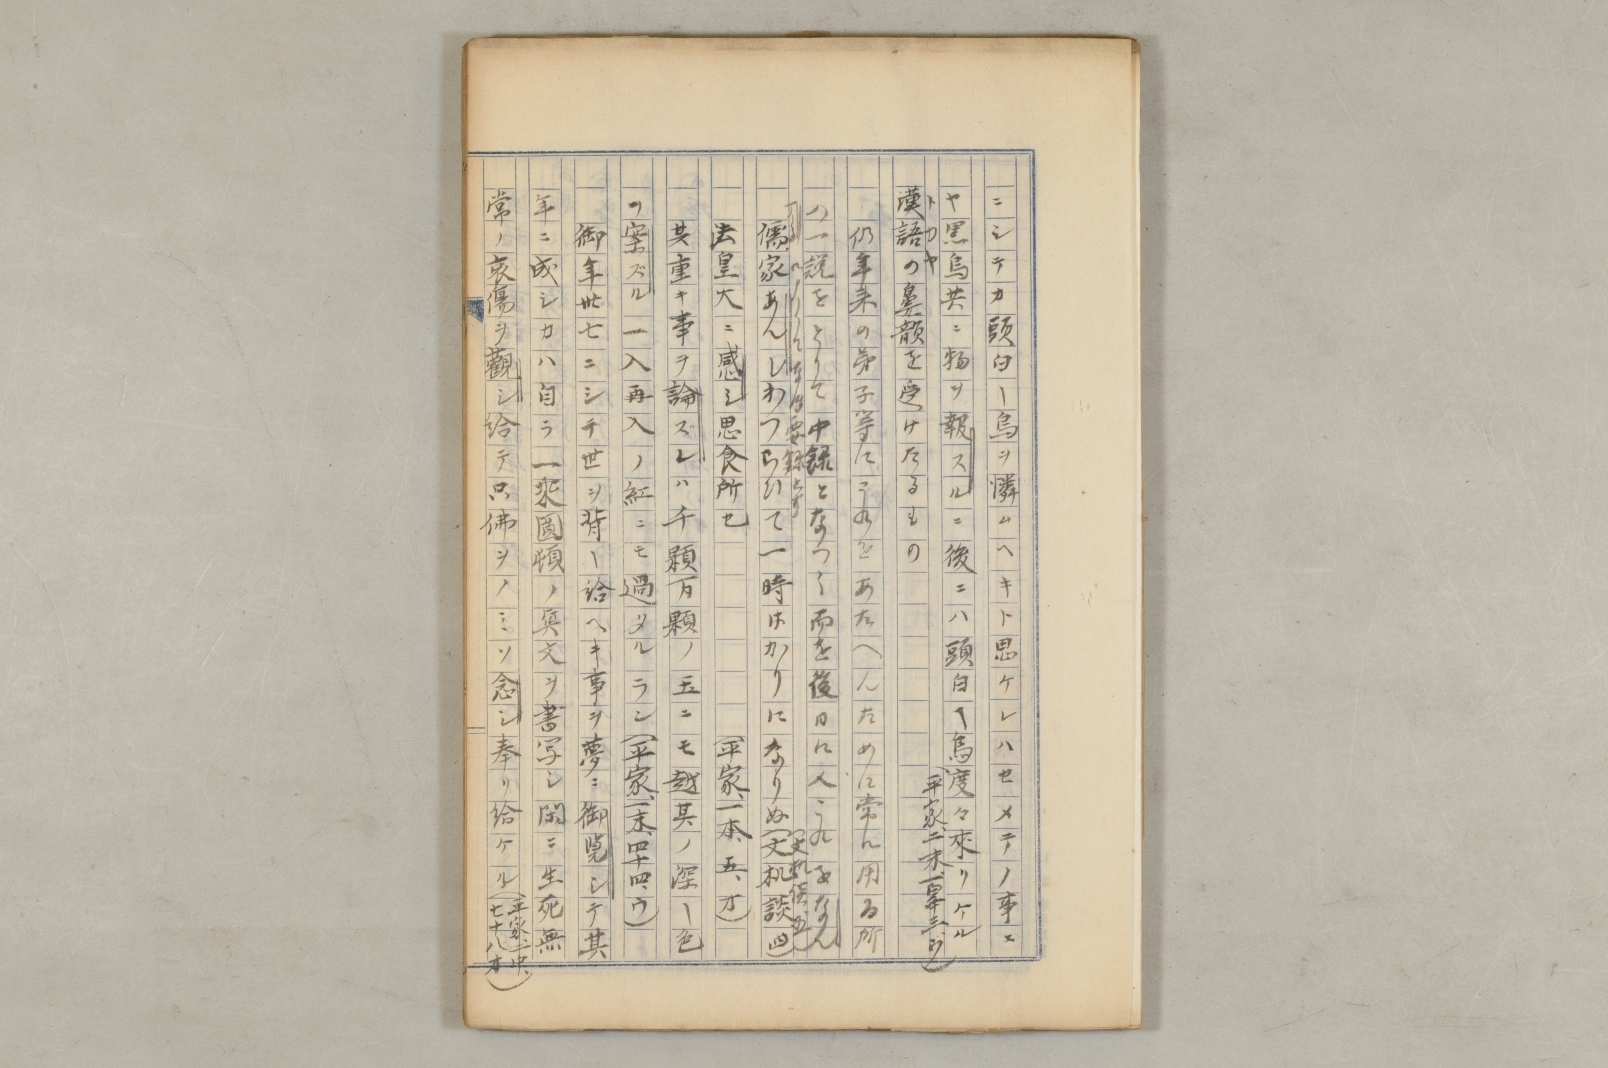 ニシテカ頭白ー烏ヲ憐ムヘキト思ケレハセメテノ事ニ
ヤ黒烏共ニ物ヲ報スルニ後ニハ頭白ー烏度々來リケル
トカヤ
平家、二末、
漢語の鼻韻を受けたるもの
仍年来の弟子等にこれをあたへんために常に用る所
の一説をとりて中録となつく而を後日に人これを
儒家あんしわつらひて一時はかりになりぬ(文机談四)
法皇大ニ感シ思食所也 (平家、一本、五、オ)
其重キ事ヲ論ズレハ千顆万顆ノ玉ニモ越其ノ深ー色
ヲ案ズル一入再入ノ紅ニモ過タルラン(平家、一末、四十四、ウ)
御年丗七ニシテ世ヲ背ー給ヘキ事ヲ夢ニ御覧シテ其
年ニ成シカハ自ラ一乘圓頓ノ真文ヲ書写シ閑ニ生死無
常ノ哀傷ヲ觀シ給テ只佛ヲノミソ念シ奉リ給ケル(平家、二中、七十八オ)